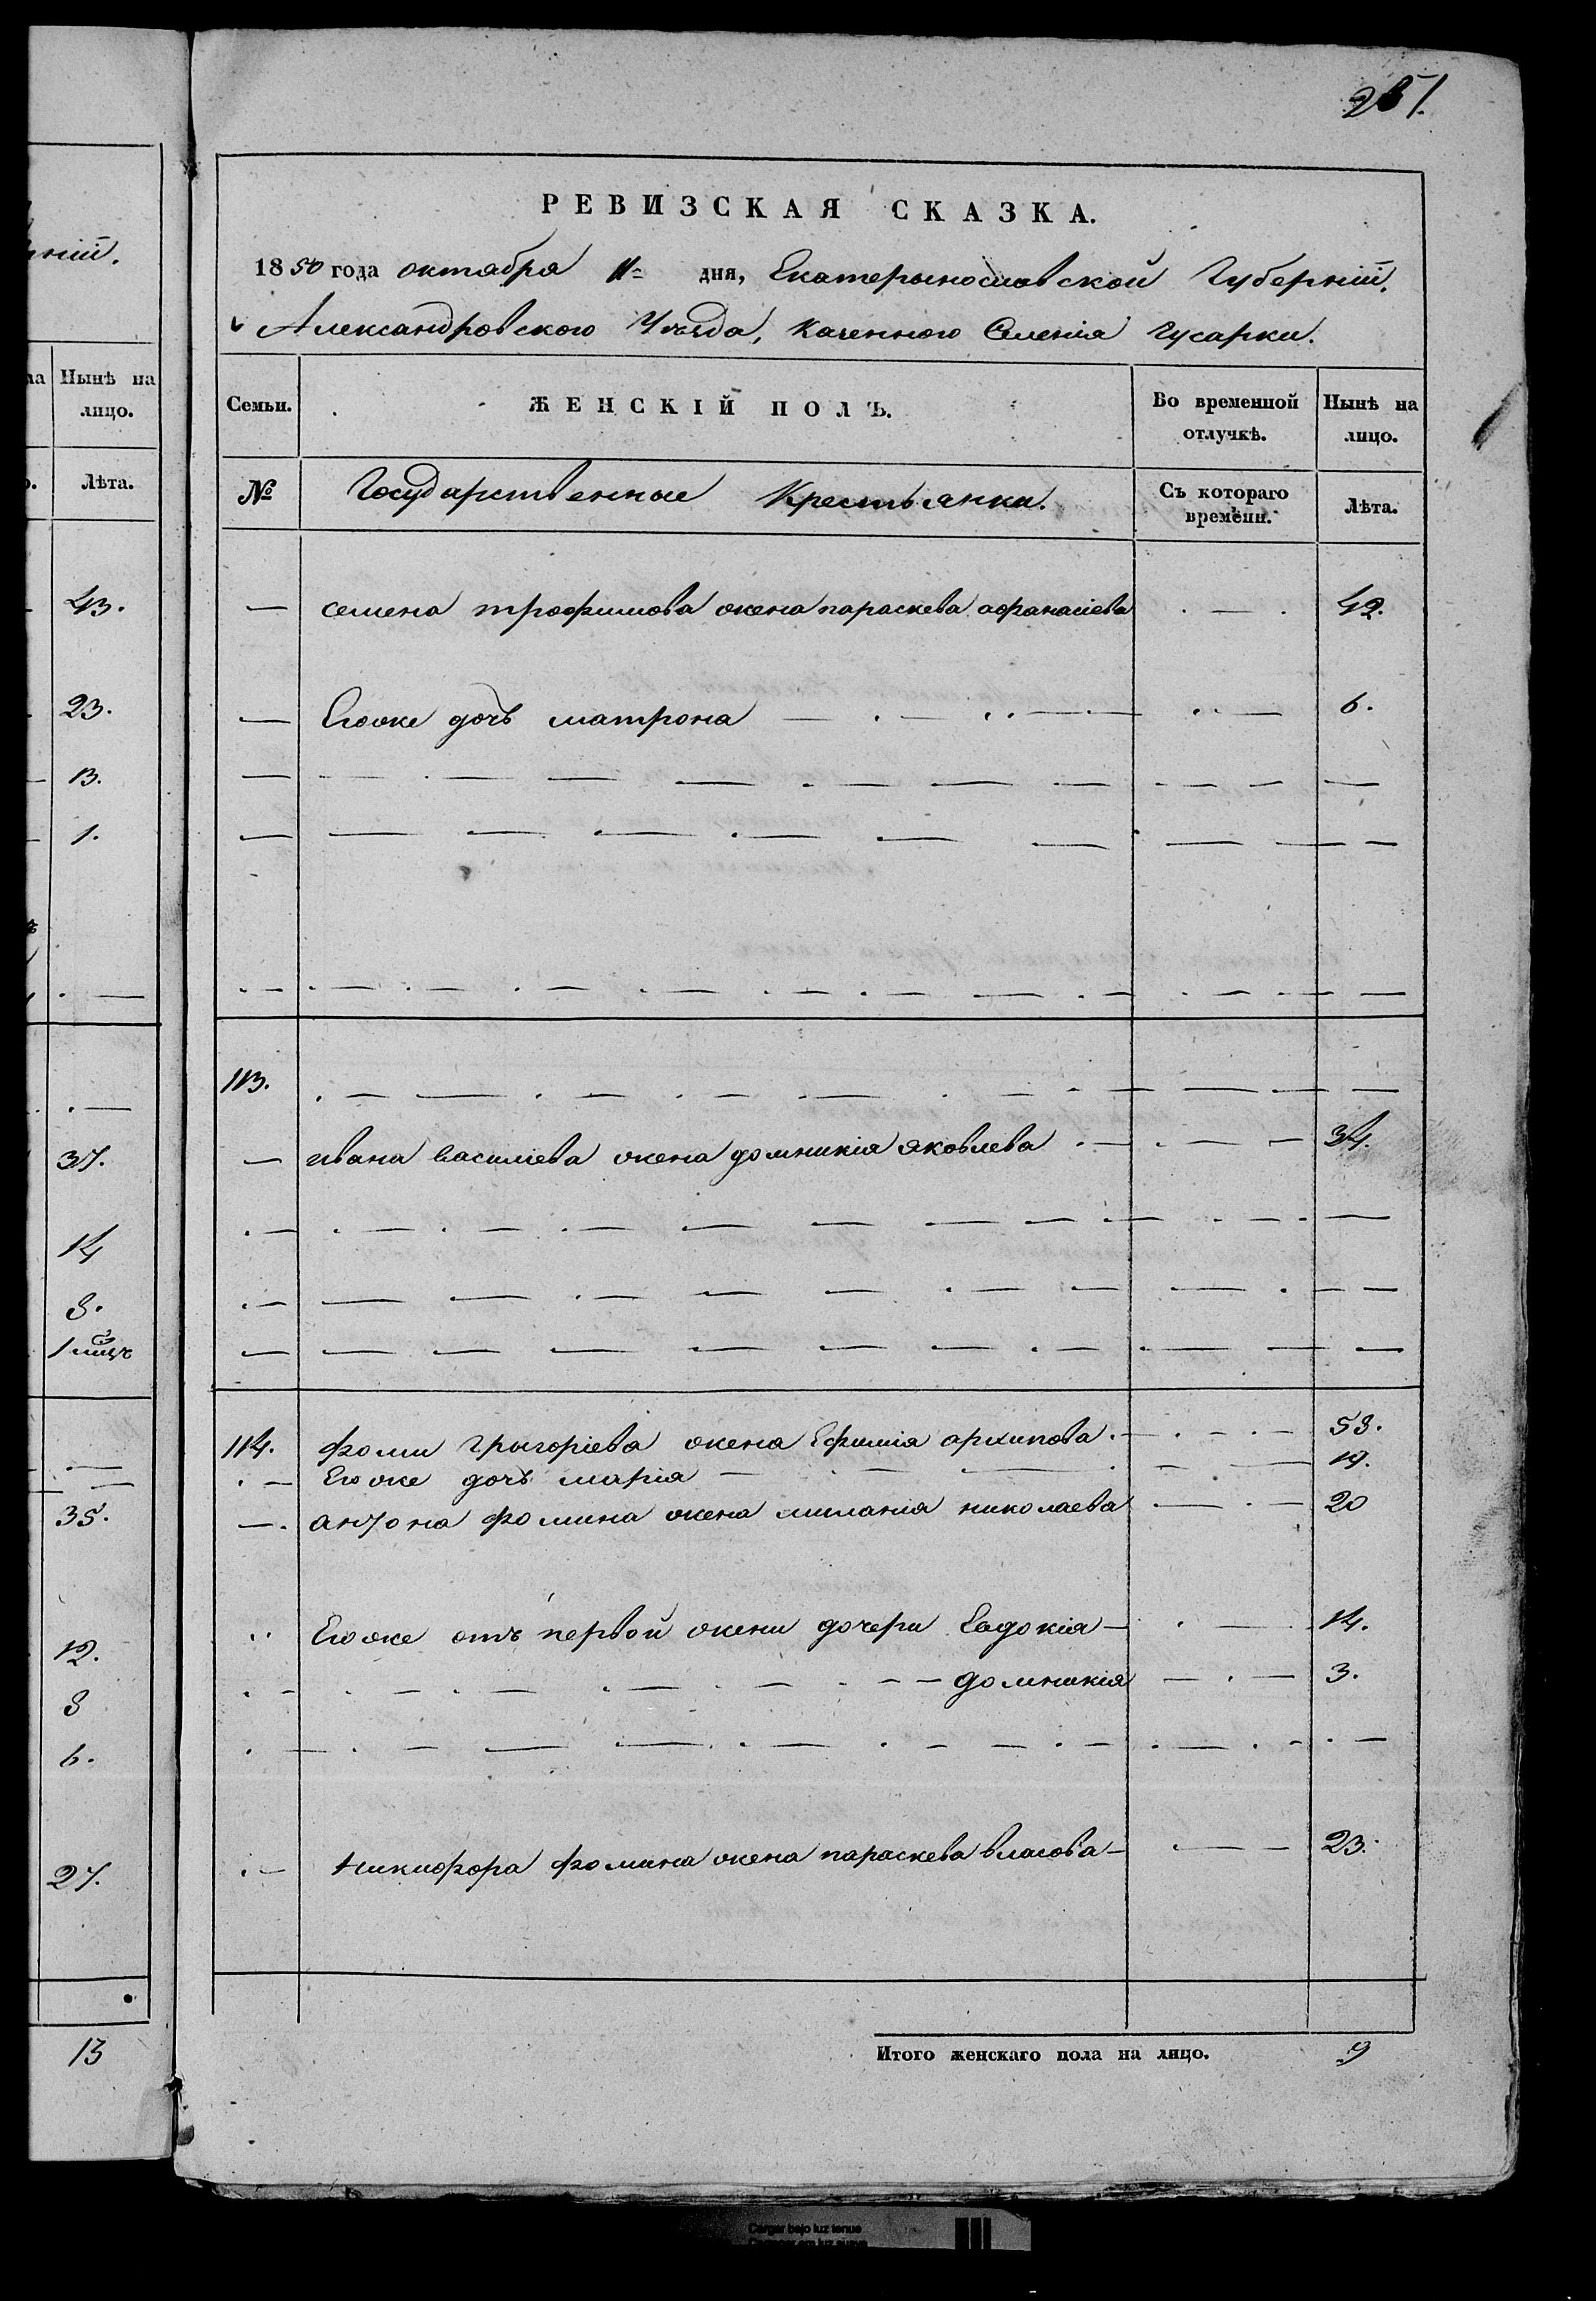 ній.
на Нынѣ на
лицо.
Лѣта.
43.
23.
13.
1.
37.
14
8.
35.
12.
8
6.
27.
13
РЕВИЗСКАЯ СКАЗКА.
1850 года октября 11= дня, Екатерынославской Губерніи,
Александровского Уѣзда, Казенного Селенія Гусарки.
Семьи. ЖЕНСКІЙ ПОЛЪ. Во временной отлучкѣ. Нынѣ на лицо.
№ Государственные Крестьянки. Съ котораго времени. Лѣта.
— семена трофимова жена параскева афанасіева · — · 42.
— Егоже дочъ матрона — 6.
113.
— ивана василіева жена домникія яковлева — 34.
114. фоми григоріева жена Ефимія архипова. — 58.
· — Егоже дочъ марія — 19.
— антона фомина жена миланія николаева — 20
Егоже отъ первой жени дочери Евдокія — 14.
домникія — 3.
· — никифора фомина жена параскева власова — 23.
Итого женскаго пола на лицо. 9
Cargar bajo luz tenue